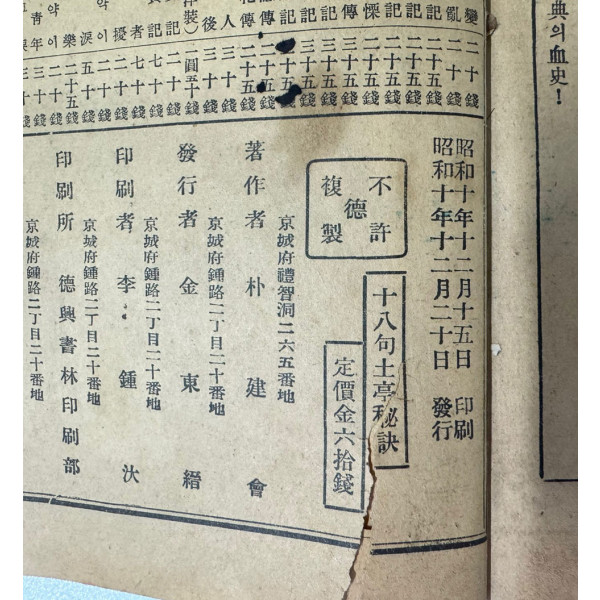 典의 血史!
變
亂 二十錢
記 二十五錢
記 二十五錢
慄 二十五錢
傳 三十五錢
記 三十五錢
記
傳 二十五錢
傳 二十五錢
人 三十錢
後 三十錢
裝) 一圓五十錢
記 二十錢
記 二十錢
者 七十錢
擾 二十錢
약이 五十錢
淚
樂 二十五錢
약이
靑年 三十錢
昭和十年十二月十五日 印刷
昭和十年十二月二十日 發行
不許
複製
德
十八句土亭秘訣
定價金六拾錢
京城府禮智洞二六五番地
著作者 朴建會
京城府鍾路二丁目二十番地
發行者 金東縉
京城府鍾路二丁目二十番地
印刷者 李鍾汏
京城府鍾路二丁目二十番地
印刷所 德興書林印刷部
京城府鍾路二丁目二十番地